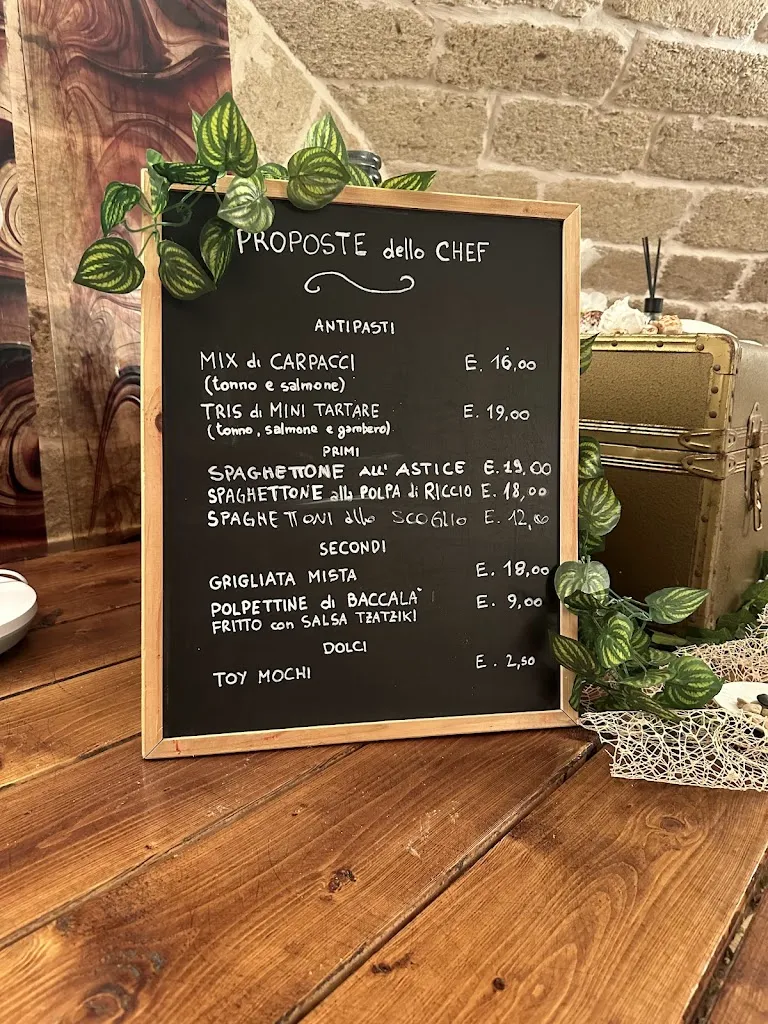 PROPOSTE dello CHEF
ANTIPASTI
MIX di CARPACCI E. 16,00
(tonno e salmone)
TRIS di MINI TARTARE E. 19,00
(tonno, salmone e gambero)
PRIMI
SPAGHETTONE ALL' ASTICE E. 19,00
SPAGHETTONE alla POLPA di RICCIO E. 18,00
SPAGHETTONI allo SCOGLIO E. 12,00
SECONDI
GRIGLIATA MISTA E. 18,00
POLPETTINE di BACCALA' E. 9,00
FRITTO con SALSA TZATZIKI
DOLCI
TOY MOCHI E. 2,50